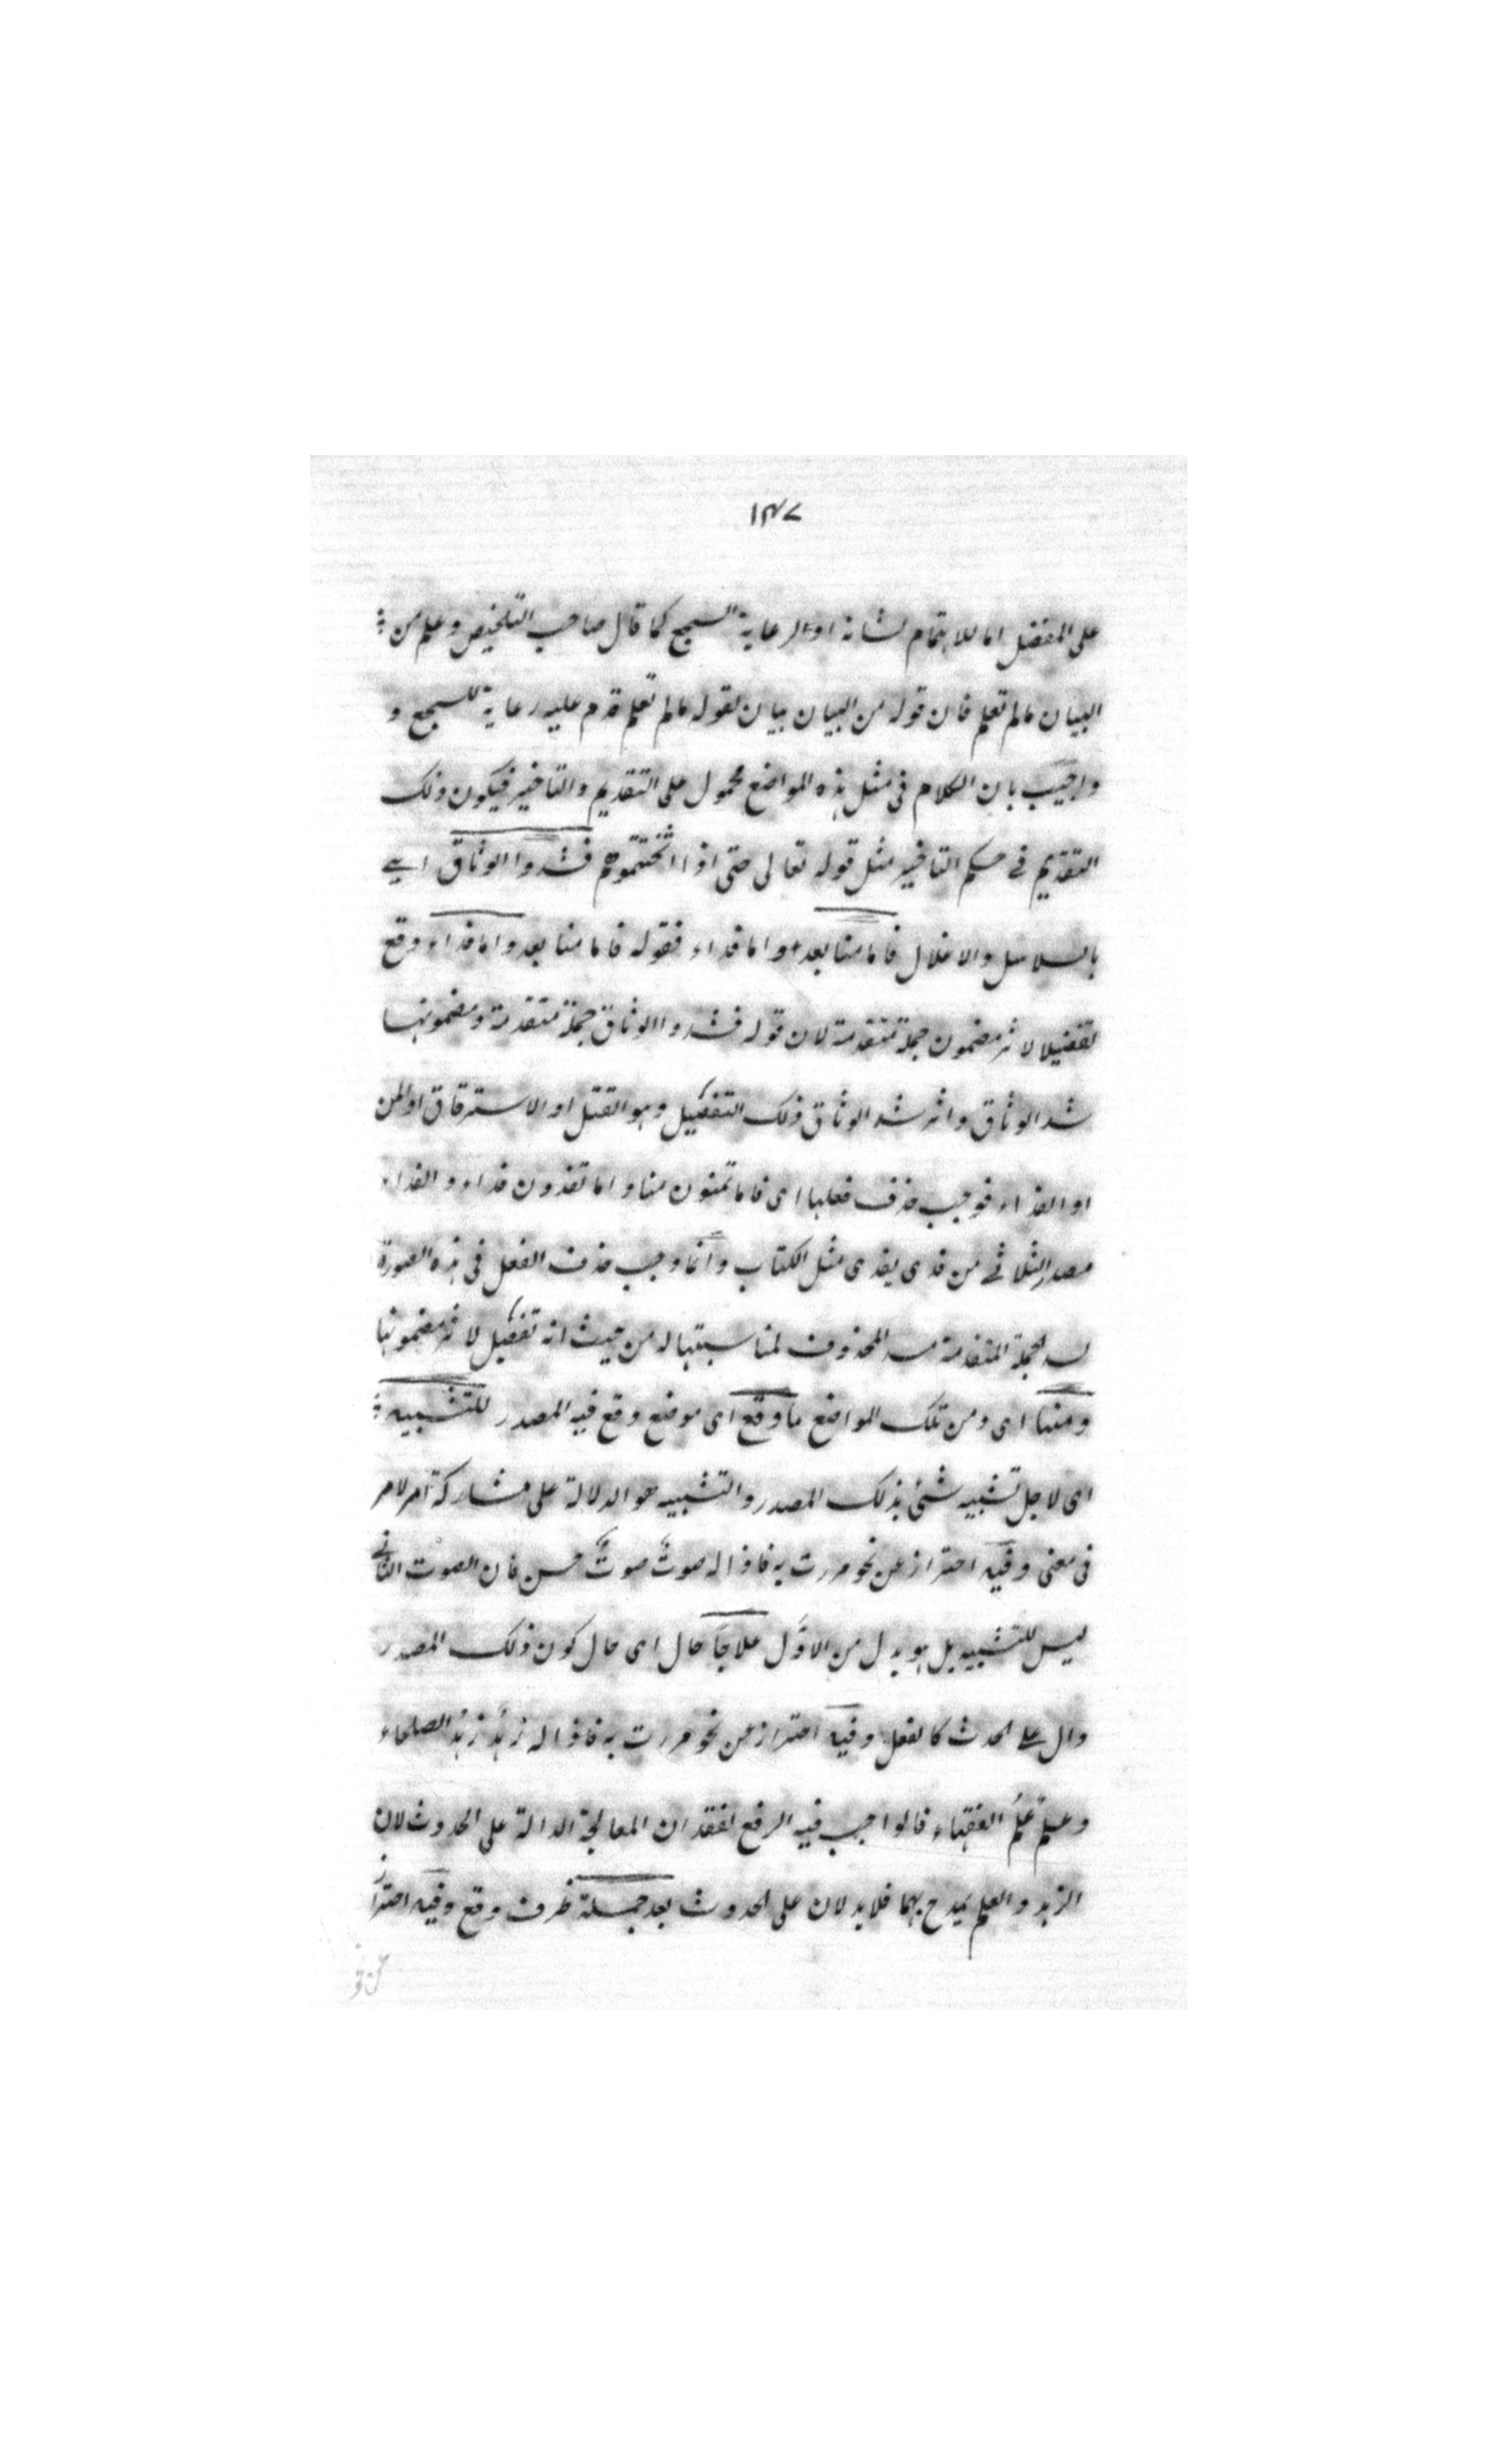 ١٣٧
على المفضل اما للاهتمام لشانه او لرعاية السجع كما قال صاحب التلخيص وعلم من
البيان مالم تعلم فان قوله من البيان بيان لقوله مالم تعلم قدم عليه رعاية للسجع و
واجيب بان الكلام فى مثل هذه المواضع محمول على التقديم والتاخير فيكون ذلك
التقديم فے حكم التاخير مثل قوله تعالى حتى اذا اثخنتموهم فشدوا الوثاق اے
بالسلاسل والاغلال فاما منا بعد واما فداء فقوله فاما منا بعد واما فداء وقع
تفضيلا لاثر مضمون جملة متقدمة لان قوله فشدوا الوثاق جملة متقدمة ومضمونها
شد الوثاق واثر شد الوثاق ذلك التفصيل وهو القتل او الاسترقاق او المن
او الفداء فوجب حذف فعلها اى فاما تمنون منا واما تفدون فداء والفداء
مصدر الثلاثے من فدى يفدى مثل الكتاب وانما وجب حذف الفعل فى هذه الصورة
لسد الجملة المتقدمة مسد المحذوف لمناسبتها له من حيث انه تفصيل لاثر مضمونها
ومنها اى ومن تلك المواضع ما وقع اى موضع وقع فيه المصدر للتشبيه
اى لاجل تشبيه شئ بذلك المصدر والتشبيه هو الدلالة على مشاركة امر لامر
فى معنى وفيه احتراز عن نحو مررت به فاذا له صوتٌ صوتٌ حسن فان الصوت الثانے
ليس للتشبيه بل هو بدل من الاوّل علاجًا حال اى حال كون ذلك المصدر
دال علے الحدث كالفعل وفيه احتراز عن نحو مررت به فاذا له زهدٌ زهدُ الصلحاء
وعلمٌ علمُ الفقهاء فالواجب فيه الرفع لفقدان المعالجة الدالة على الحدوث لان
الزهد والعلم يمدح بهما فلا يدلان على الحدوث بعد جملة ظرف وقع وفيه احتراز